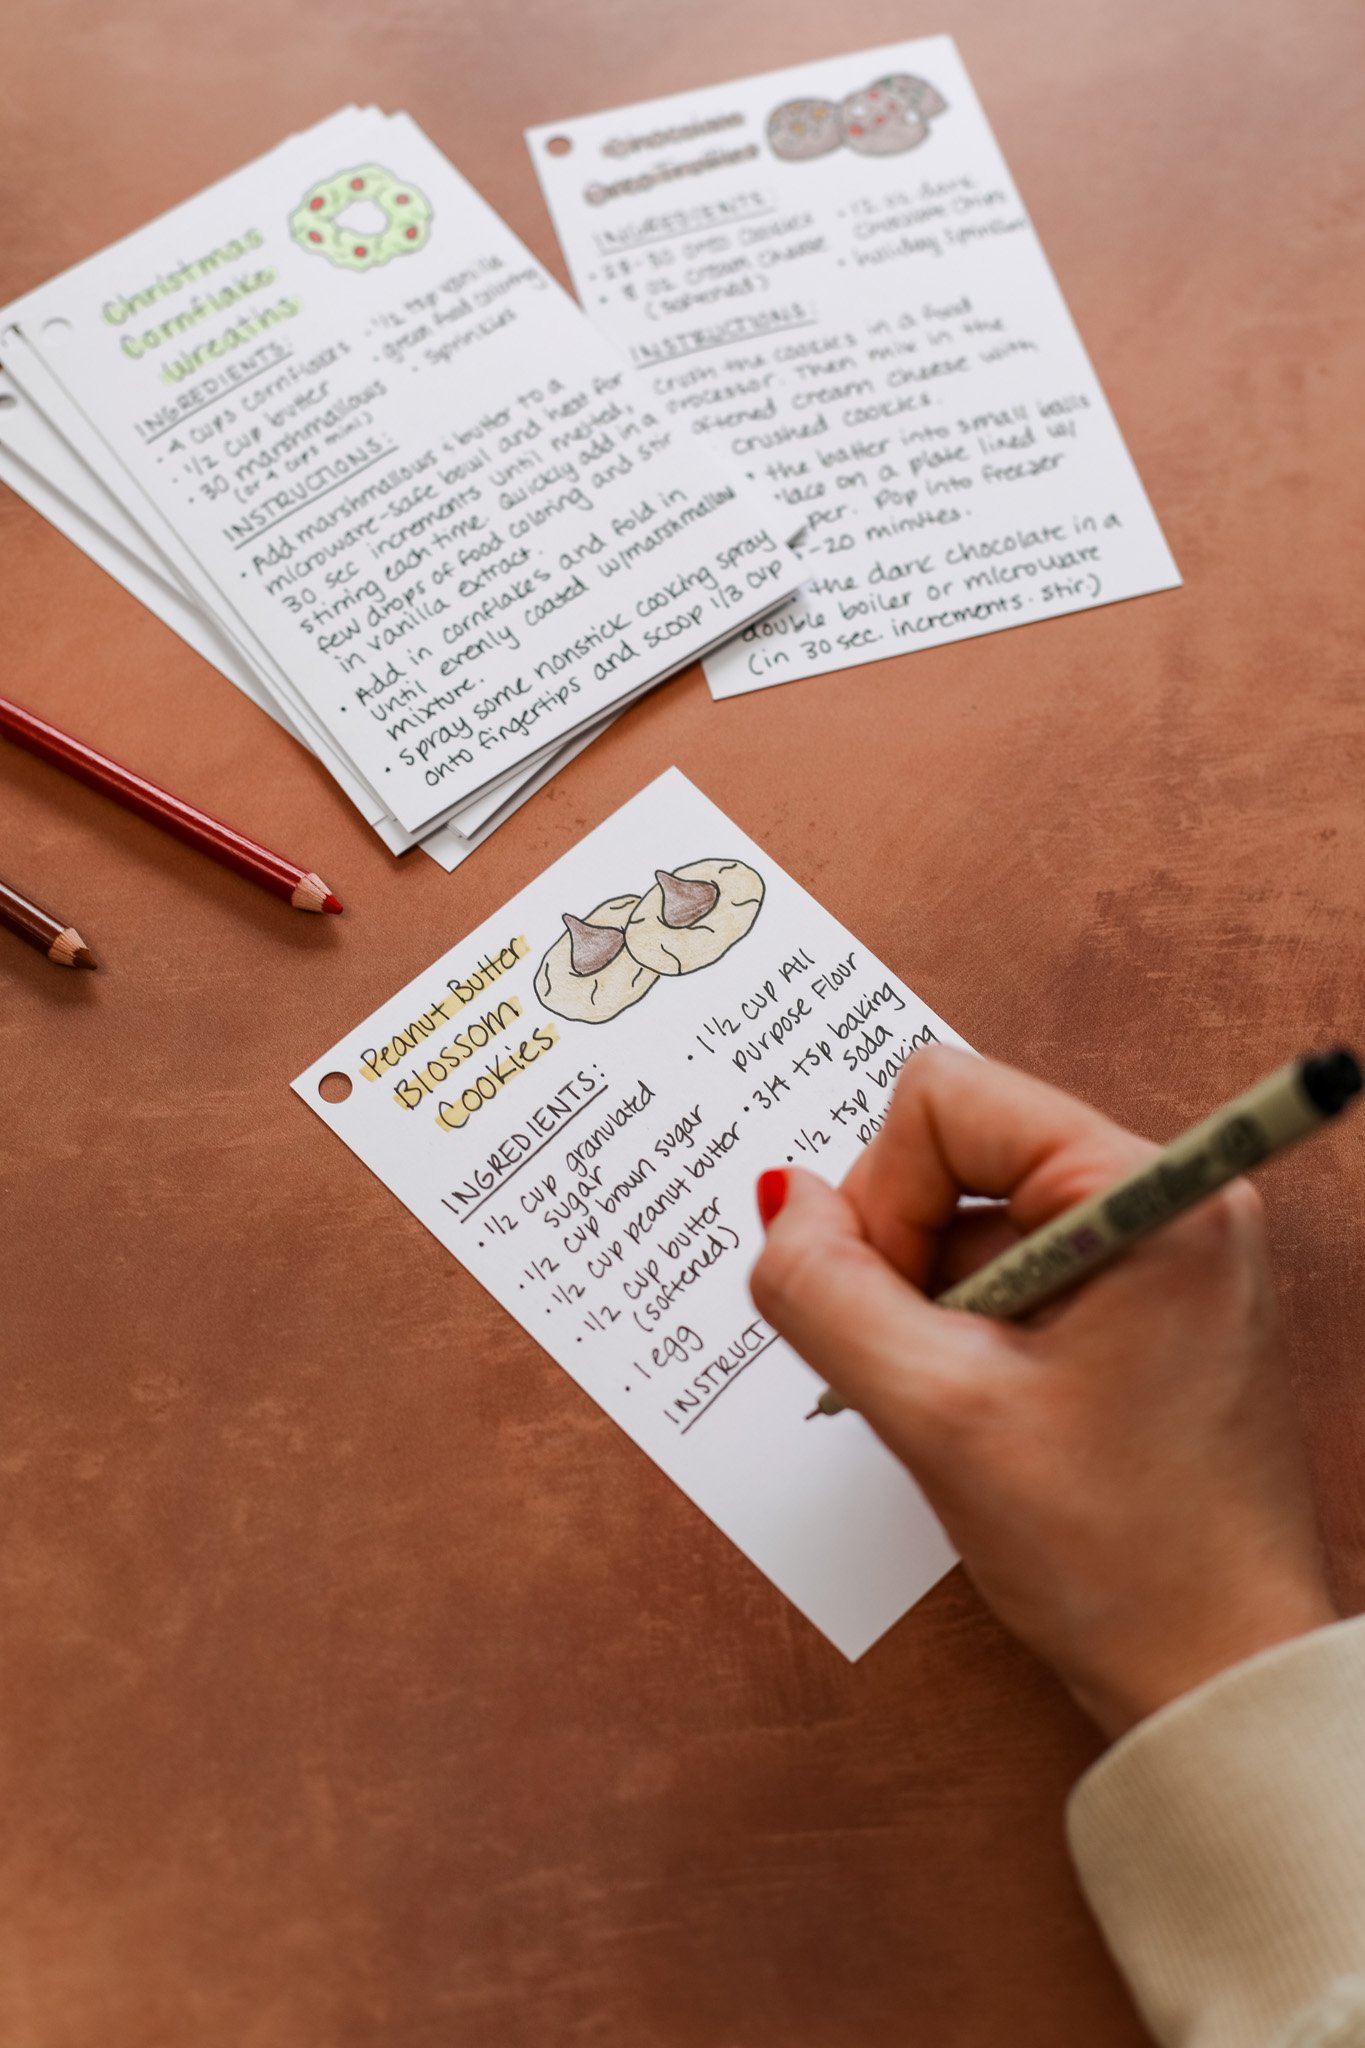 Christmas
Cornflake
Wreaths
INGREDIENTS:
• 4 cups cornflakes
• 1/2 cup butter
• 30 marshmallows
(or 4 cups mini)
• 1/2 tsp vanilla
• green food coloring
• sprinkles
INSTRUCTIONS:
• Add marshmallows & butter to a
microware-safe bowl and heat for
30 sec increments until melted,
stirring each time. Quickly add in a
few drops of food coloring and stir
in vanilla extract.
• Add in cornflakes and fold in
until evenly coated w/marshmallow
mixture.
• Spray some nonstick cooking spray
onto fingertips and scoop 1/3 cup
Christmas
Oreo Truffles
INGREDIENTS:
• 28-30 OREO cookies
• 8 oz cream cheese
(softened)
• 12 oz. dark
chocolate chips
• holiday sprinkles
INSTRUCTIONS:
crush the cookies in a food
processor. Then mix in the
oftened cream cheese with
crushed cookies.
• the batter into small balls
lace on a plate lined w/
per. Pop into freezer
-20 minutes.
the dark chocolate in a
double boiler or microwave
(in 30 sec. increments. stir.)
Peanut Butter
Blossom
Cookies
INGREDIENTS:
• 1/2 cup granulated
sugar
• 1/2 cup brown sugar
• 1/2 cup peanut butter
• 1/2 cup butter
(softened)
• 1 egg
• 1 1/2 cup All
purpose Flour
• 3/4 tsp baking
soda
• 1/2 tsp baking
pow
INSTRUCT